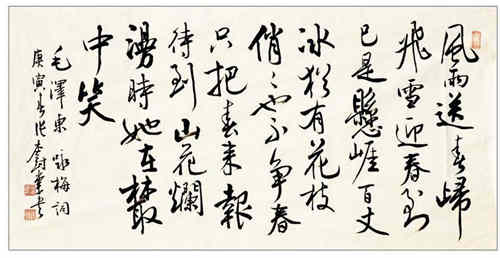 風雨送春歸
飛雪迎春到
已是懸崖百丈
冰猶有花枝
俏〻也不爭春
只把春來報
待到山花爛
漫時她在叢
中笑
毛澤東 咏梅詞
庚寅 書